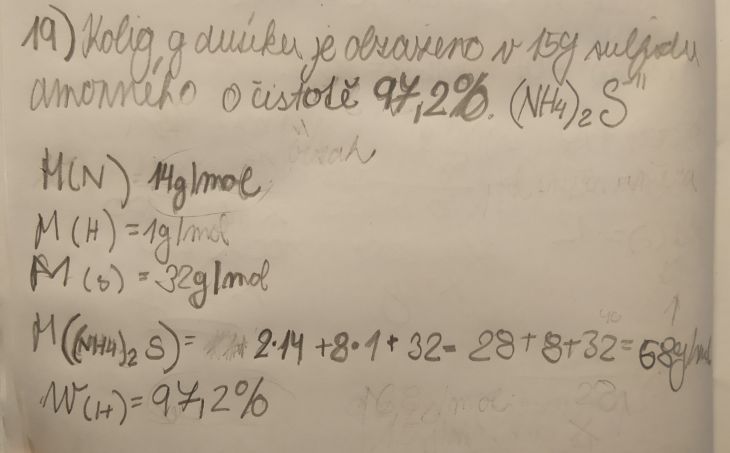 19) Kolig g dusíku je obsaženo v 15g sulfidu
amonného o čistotě 97,2%. (NH4)2 S"
M(N) 14g/mol
M(H) = 1g/mol
M(s) = 32g/mol
M((NH4)2 S) = 2·14 + 8·1 + 32 = 28 + 8 + 32 = 68g/mol
W(H) = 97,2%